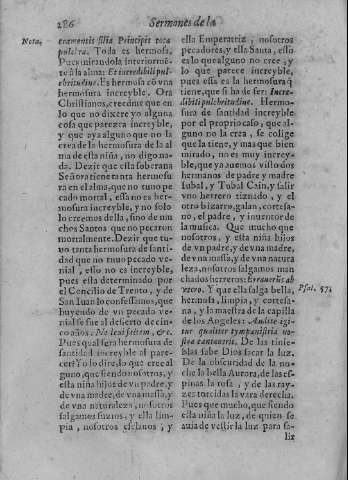 286
Sermones de la
Nota.
cramentis filia Principis tota
pulchra. Toda es hermosa,
Pues mirandola interiormē-
te ā la alma: Et incredibili pul-
chritudine. Es hermosa cō vna
hermosura increyble. Ora
Christianos, creedme que en
lo que no dizere yo alguna
cosa que parezca increyble,
y que aya alguno que no la
crea de la hermosura de la al
ma de esta niña, no digo na-
da. Dezir que esta soberana
Señora tiene tanta hermosu
ra en el alma, que no tuuo pe
cado mortal, esta no es her-
mosura increyble, y no solo
lo creemos della, sino de mu
chos Santos que no pecaron
mortalmente. Dezir que tu-
uo tanta hermosura de santi-
dad que no tuuo pecado ve-
nial, esso no es increyble,
pues esta determinado por
el Concilio de Trento, y de
San Iuan lo confessamos, que
huyendo de vn pecado ve-
nial se fue al desierto de cin-
co años. Ne leui saltem, &c.
Pues qual sera hermosura de
santidad increyble al pare-
cer? Yo lo dire, lo que cree al
guno, que siendo nosotros, y
esta niña hijos de vn padre, y
de vna madre, de vna massa, y
de vna naturaleza, nosotros
salgamos suzios, y ella lim-
pia, nosotros esclauos, y
ella Emperatriz, nosotros
pecadores, y ella Santa, esso
es lo que alguno no cree, y
lo que parece increyble,
pues essa es la hermosura que
tiene, que si ha de ser: Incre-
dibili pulchritudine. Hermo-
sura de santidad increyble
por el proprio caso, que al-
guno no la crea, se colige
que la tiene, y mas que bien
mirado, no es muy increy-
ble, que ya auemos visto dos
hermanos de padre y madre
Iubal, y Tubal Cain, y salir
vno herrero tiznado, y el
otro bizarro, galan, cortesa-
no, el padre, y inuentor de
la musica. Que mucho que
nosotros, y esta niña hijos
de vn padre, y de vna madre,
de vna massa, y de vna natura
leza, nosotros salgamos man
chados herreros: Errauerūt ab
vtero. Y que ella salga bella,
Psal. 57.
hermosa, limpia, y cortesa-
na, y la maestra de la capilla
de los Angeles: Audite igi-
tur qualiter tympanistria vo-
stra cantauerit. De las tinie-
blas sabe Dios sacar la luz.
De la obscuridad de la no-
che la bella Aurora, de las es-
pinas la rosa, y de las ray-
zes torcidas la vara derecha.
Pues que mucho, que siendo
esta niña la luz, de quien se
auia de vestir la luz para sa-
lir